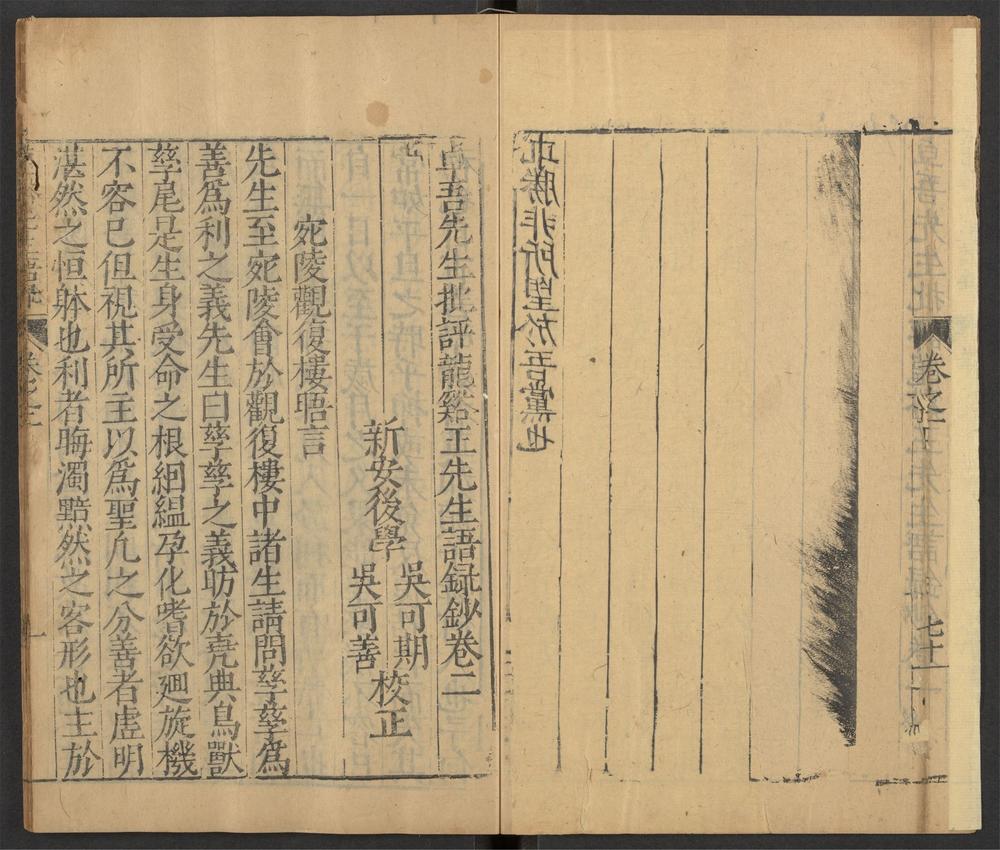 卷之一
七十一
求勝非所望於吾黨也
卓吾先生批評龍谿王先生語録鈔卷二
新安後學
吳可期
吳可善
校正
宛陵觀復樓晤言
先生至宛陵會於觀復樓中諸生請問孳孳爲
善爲利之義先生曰孳孳之義昉於堯典鳥獸
孳尾是生身受命之根絪緼孕化嗜欲廻旋機
不容已但視其所主以爲聖凢之分善者虛明
湛然之恒躰也利者晦濁黯然之客形也主於
卷之二
一